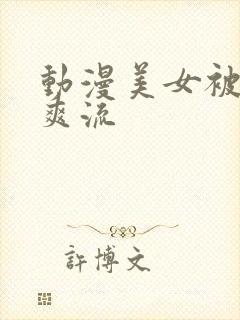 動漫美女被
爽流
許博文